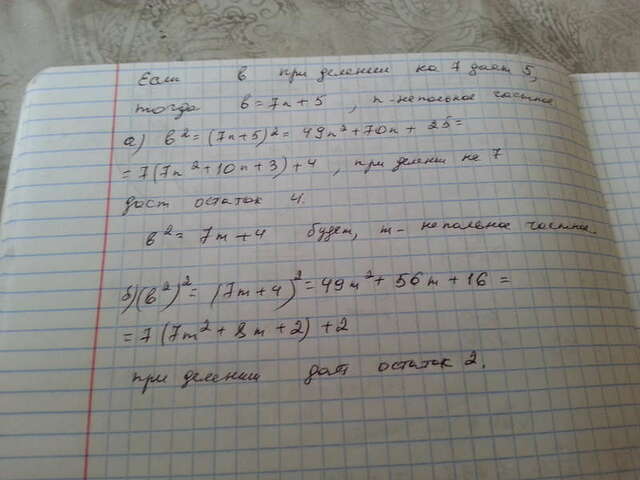 Если в при делении на 7 дает 5,
тогда в = 7n + 5 , n - неполное частное
а) в² = (7n+5)² = 49n² + 70n + 25 =
= 7(7n² + 10n + 3) + 4 , при делен не 7
даст остаток 4.
в² = 7m + 4 будет, m - неполное частное.
б) (в²)² = (7m + 4)² = 49m² + 56m + 16 =
= 7(7m² + 8m + 2) + 2
при делении даст остаток 2.